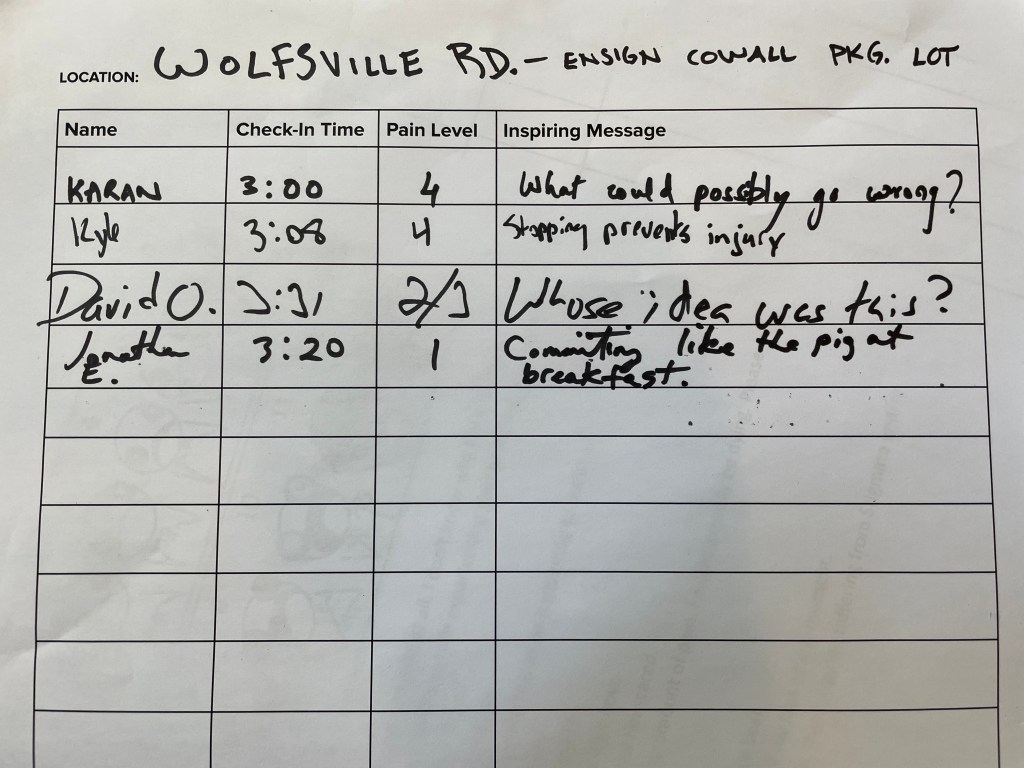 LOCATION: WOLFSVILLE RD. – ENSIGN COWALL PKG. LOT
Name Check-In Time Pain Level Inspiring Message
KARAN 3:00 4 What could possibly go wrong?
Kyle 3:08 4 Stopping prevents injury
David O. 3:31 2/3 Whose idea was this?
Jonathan 3:20 1 Commiting like the pig at
E. breakfast.